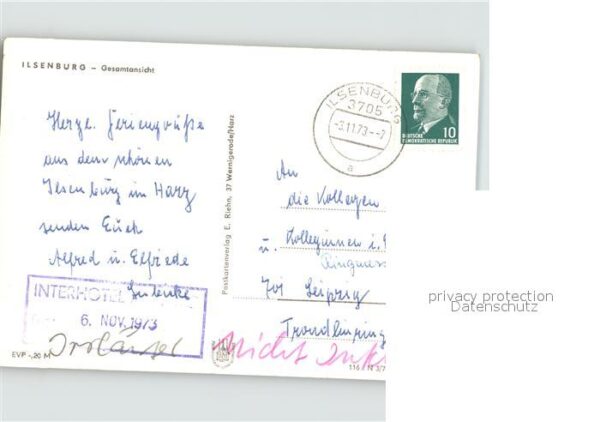 ILSENBURG – Gesamtansicht
Herzl. Feriengrüße
aus dem schönen
Ilsenburg im Harz
senden Euch
Alfred u. Elfriede
INTERHOTEL
6. NOV. 1973
EVP -,20 M
Postkartenverlag E. Riehn, 37 Wernigerode/Harz
ILSENBURG
3705
-5.11.73--7
a
DEUTSCHE
DEMOKRATISCHE REPUBLIK
10
An
die Kollegen
u. Kolleginnen i.
Ringmess
701 Leipzig
Tröndlinring
Nicht
116
privacy protection
Datenschutz